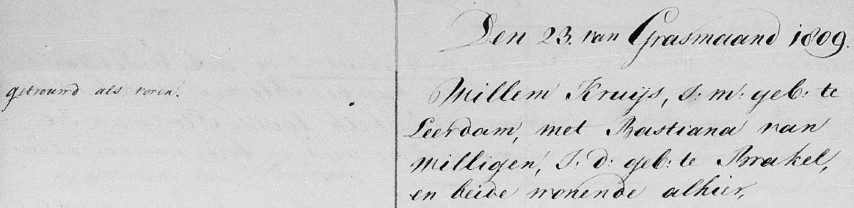 Den 23. van Grasmaand 1809.
getrouwd als voren.
Willem Kruijs, J: m: geb: te
Leerdam, met Bastiana van
Milligen, J: d: geb: te Brakel,
en beide wonende alhier,